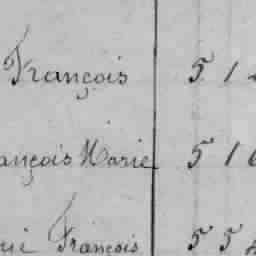 François 5 1
ançois Marie 5 1 6
rie François 5 5